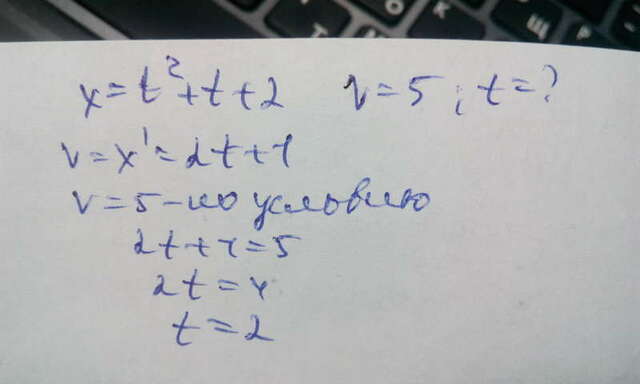 x=t²+t+2 v=5; t=?
v=x'=2t+1
v=5-по условию
2t+1=5
2t=4
t=2